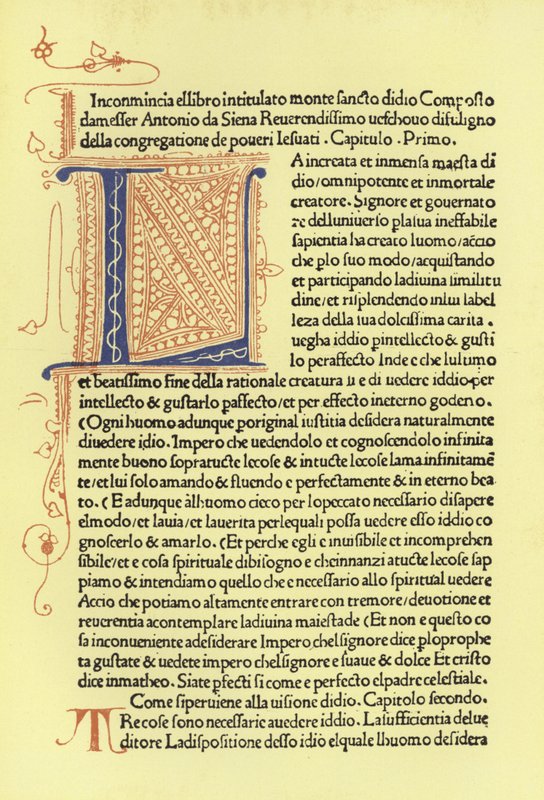 Inconmincia ellibro intitulato monte sancto didio Composto
damesser Antonio da Siena Reuerendissimo ueschouo difuligno
della congregatione de poueri Iesuati . Capitulo . Primo .
LA increata et inmensa maesta di
dio/omnipotente et inmortale
creatore. Signore et gouernato
re delluniuerso plasua ineffabile
sapientia ha creato luomo/accio
che plo suo modo/acquistando
et participando ladiuina similitu
dine/et risplendendo inlui label
leza della sua dolcissima carita .
uegha iddio pintellecto & gusti
lo peraffecto Inde e che lultimo
et beatissimo fine della rationale creatura si e di uedere iddio per
intellecto & gustarlo paffecto/et per effecto ineterno godeno.
(Ogni huomo adunque poriginal iustitia desidera naturalmente
diuedere idio. Impero che uedendolo et cognoscendolo infinita
mente buono sopratucte lecose & intucte lecose lama infinitamē
te/et lui solo amando & fluendo e perfectamente & in eterno bea
to. (E adunque alhuomo cieco per lopeccato necessario disapere
elmodo/et lauia/et lauerita perlequali possa uedere esso iddio co
gnoscerlo & amarlo. (Et perche egli e inuisibile et incomprehen
sibile/et e cosa spirituale dibisogno e cheinnanzi atucte lecose sap
piamo & intendiamo quello che e necessario allo spiritual uedere
Accio che potiamo altamente entrare con tremore/deuotione et
reuerentia acontemplare ladiuina maiestade (Et non e questo co
sa inconueniente adesiderare Impero chel signore dice plo prophe
ta gustate & uedete impero chelsignore e suaue & dolce Et cristo
dice inmatheo. Siate pfecti si come e perfecto elpadre celestiale.
Come siperuiene alla uisione didio. Capitolo secondo.
TRe cose sono necessarie auedere iddio. La sufficientia delue
ditore Ladispositione desso idio elquale lhuomo desidera